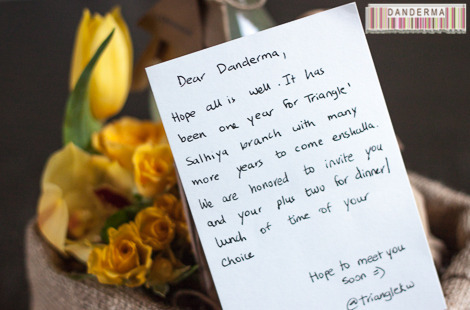 DANDERMA
Dear Danderma,
Hope all is well. It has
been one year for Triangle'
Salhiya branch with many
more years to come enshalla.
We are honored to invite you
and your plus two for dinner/
lunch of time of your
choice
Hope to meet you
soon =)
@trianglekw